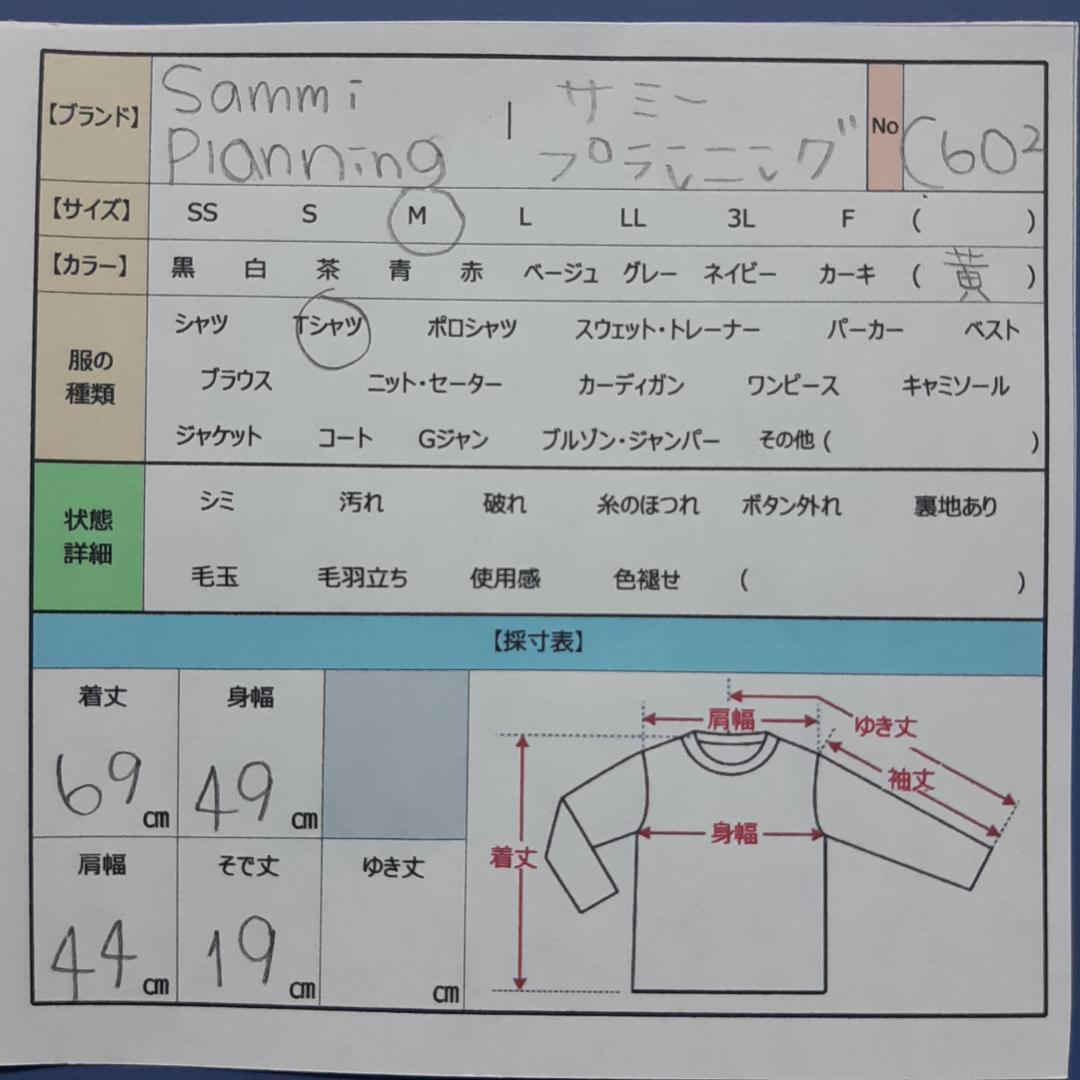 【ブランド】 Sammi Planning | サミー プランニング No (602
【サイズ】 SS S M L LL 3L F ( )
【カラー】 黒 白 茶 青 赤 ベージュ グレー ネイビー カーキ ( 黄 )
服の種類
シャツ Tシャツ ポロシャツ スウェット・トレーナー パーカー ベスト
ブラウス ニット・セーター カーディガン ワンピース キャミソール
ジャケット コート Gジャン ブルゾン・ジャンパー その他 ( )
状態詳細
シミ 汚れ 破れ 糸のほつれ ボタン外れ 裏地あり
毛玉 毛羽立ち 使用感 色褪せ ( )
【採寸表】
着丈 身幅
69 cm 49 cm
肩幅 そで丈 ゆき丈
44 cm 19 cm cm
肩幅 ゆき丈
袖丈
身幅
着丈